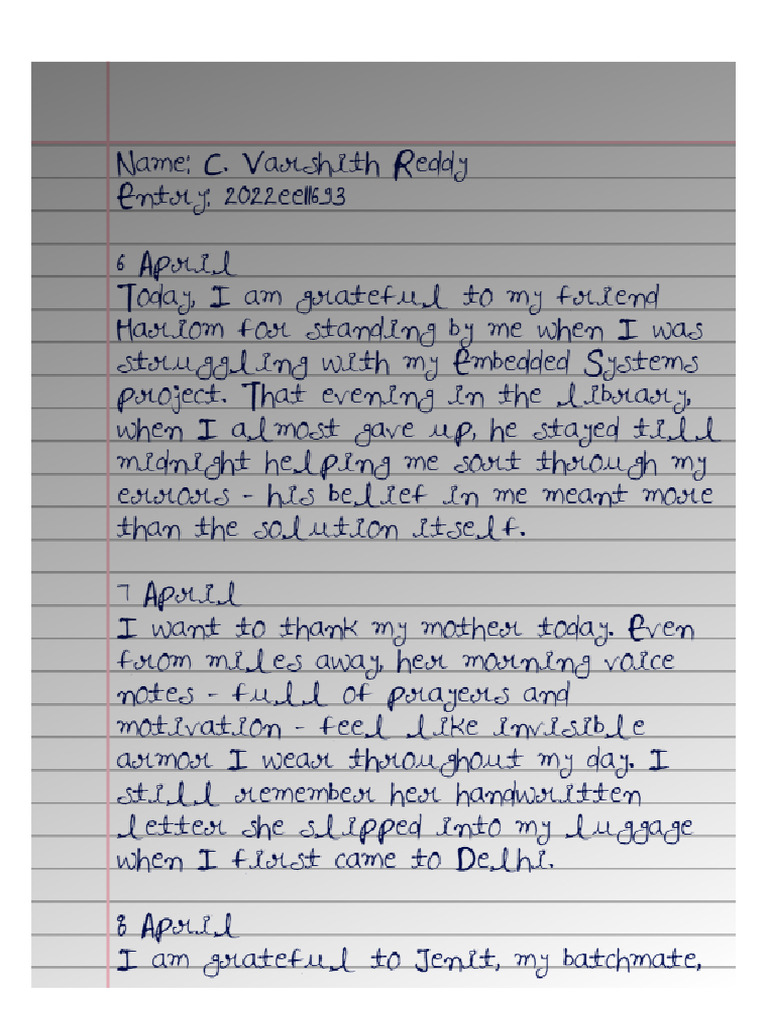 Name: C. Varshith Reddy
Entry: 2022ee11693
6 April
Today, I am grateful to my friend
Hariom for standing by me when I was
struggling with my Embedded Systems
project. That evening in the library,
when I almost gave up, he stayed till
midnight helping me sort through my
errors - his belief in me meant more
than the solution itself.
7 April
I want to thank my mother today. Even
from miles away, her morning voice
notes - full of prayers and
motivation - feel like invisible
armor I wear throughout my day. I
still remember her handwritten
letter she slipped into my luggage
when I first came to Delhi.
8 April
I am grateful to Jenit, my batchmate,